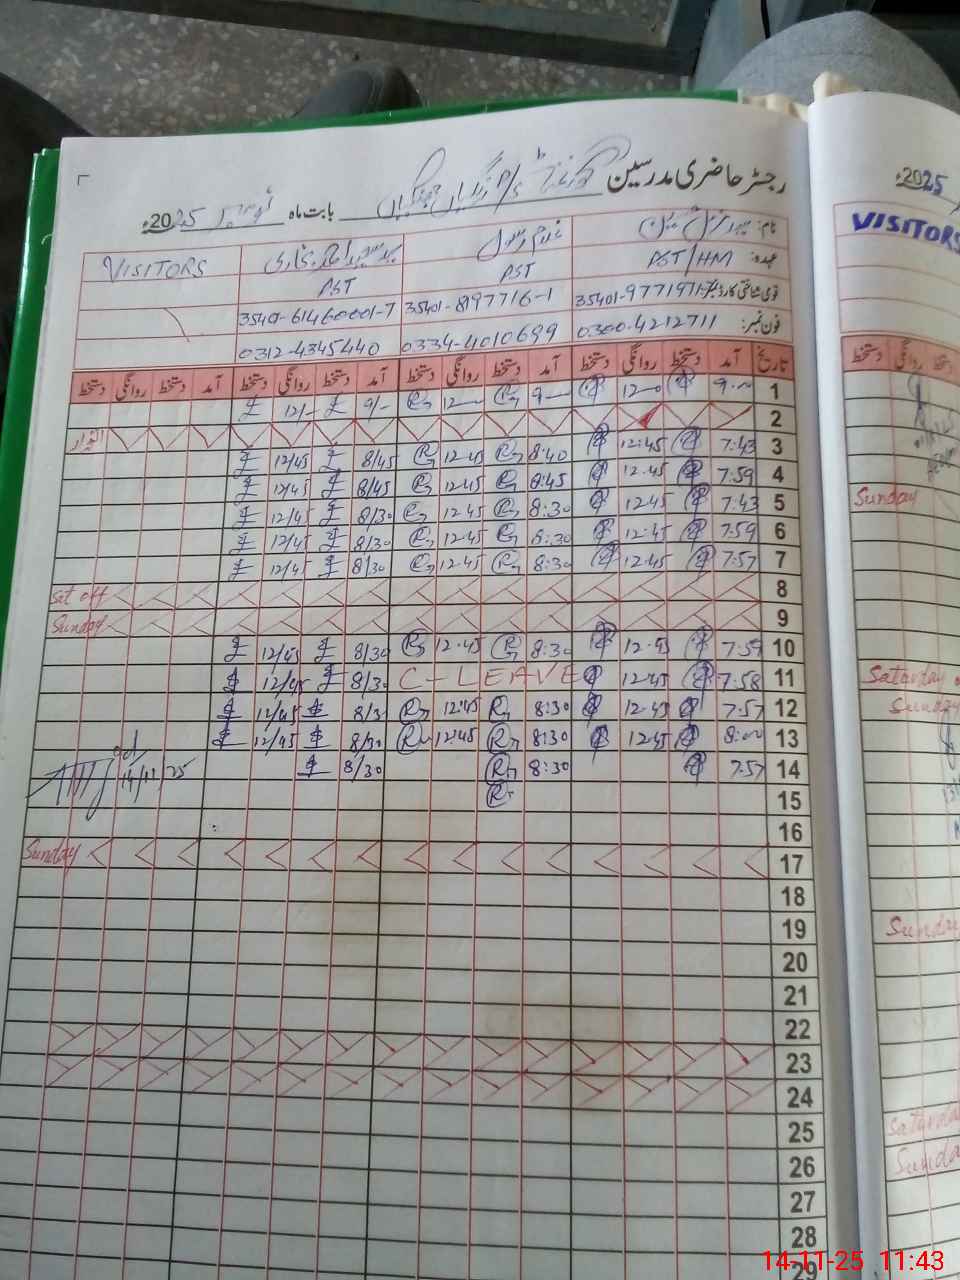 رجسٹر حاضری مدرسین گورنمنٹ P/S
بابت ماہ نومبر 2025ء
نام:
VISITORS
عہدہ: PST/HM PST PST
قومی شناختی کارڈ نمبر: 35401-8197716-1 35401-61460001-7
فون نمبر: 0300-4212711 0334-4010699 0312-4345440
تاریخ آمد دستخط روانگی دستخط آمد دستخط روانگی دستخط آمد دستخط روانگی دستخط آمد دستخط روانگی دستخط
1 9-00 12-00 9-00 12-00 9/- 12/-
2 اتوار
3 7:43 12:45 8:40 12-45 8/45 12/45
4 7:59 12.45 8:45 12.45 8/45 12/45
5 7:43 12.45 8:30 12.45 8/30 12/45
6 7:59 12:45 8:30 12-45 8/30 12/45
7 7:57 12.45 8:30 12.45 8/30 12/45
8 Sat off
9 Sunday
10 7:59 12.45 8:30 12.45 8/30 12/45
11 7:58 12.45 C-LEAVE 8/30 12/45
12 7:57 12.45 8:30 12:45 8/3 12/45
13 8:00 12.45 8:30 12:45 8/30 12/45
14 7:57 8:30 8/30 14/11/25
15
16
17 Sunday
18
19
20
21
22
23
24
25
26
27
28
29
2025ء
VISITORS
دستخط روانگی دستخط
Sunday
Saturday
Sunday
Sunday
Saturda
Sunda
14-11-25 11:43